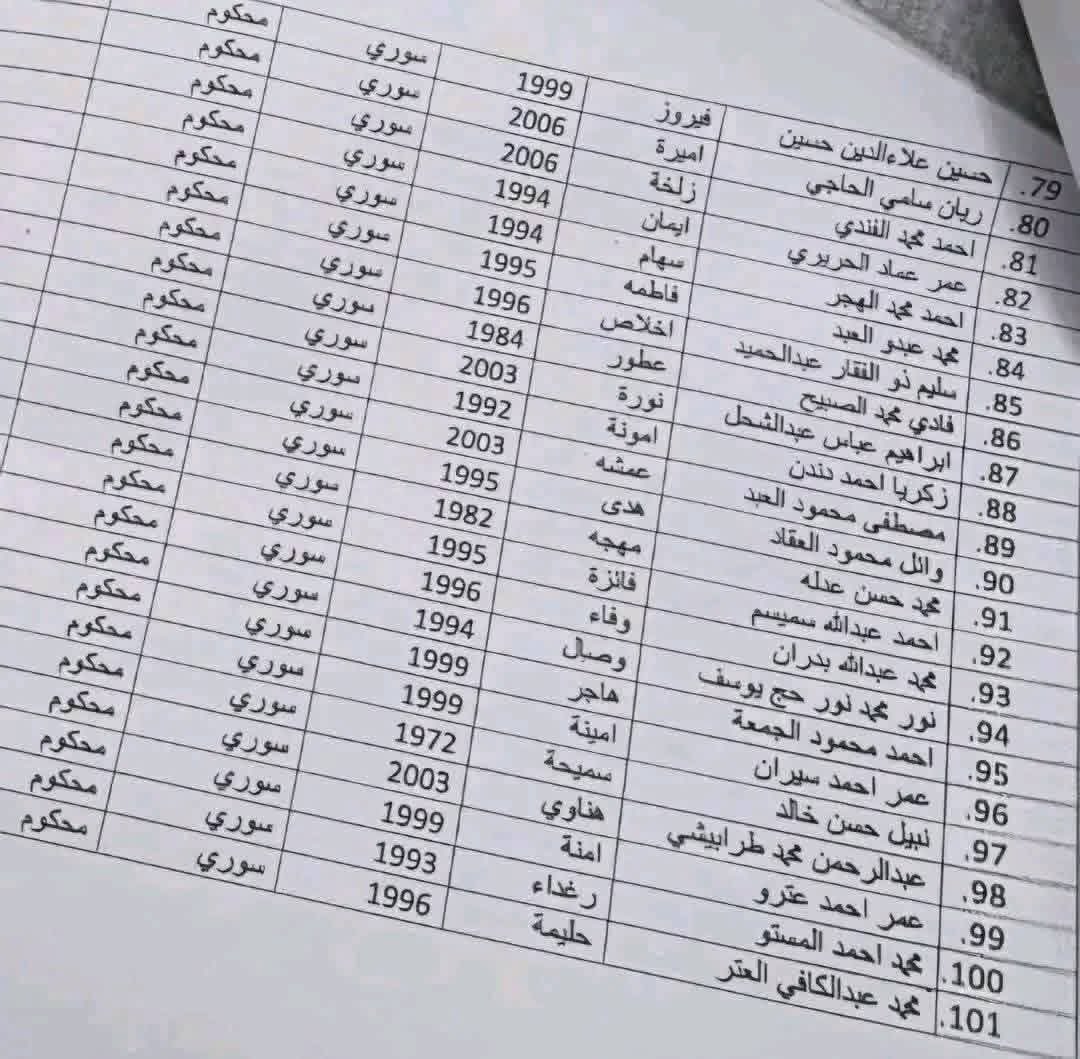 79. حسين علاءالدين حسين فيروز 1999 سوري محكوم
80. ريان سامي الحاجي اميرة 2006 سوري محكوم
81. احمد محمد الفندي زلخة 2006 سوري محكوم
82. عمر عماد الحريري ايمان 1994 سوري محكوم
83. احمد محمد الهجر سهام 1994 سوري محكوم
84. محمد عبدو العبد فاطمه 1995 سوري محكوم
85. سليم ذو الفقار عبدالحميد اخلاص 1996 سوري محكوم
86. فادي محمد الصبيح عطور 1984 سوري محكوم
87. ابراهيم عباس عبدالشحل نورة 2003 سوري محكوم
88. زكريا احمد دندن امونة 1992 سوري محكوم
89. مصطفى محمود العبد عمشه 2003 سوري محكوم
90. وائل محمود العقاد هدى 1995 سوري محكوم
91. محمد حسن عدله مهجه 1982 سوري محكوم
92. احمد عبدالله سميسم فائزة 1995 سوري محكوم
93. محمد عبدالله بدران وفاء 1996 سوري محكوم
94. نور محمد نور حج يوسف وصال 1994 سوري محكوم
95. احمد محمود الجمعة هاجر 1999 سوري محكوم
96. عمر احمد سيران امينة 1999 سوري محكوم
97. نبيل حسن خالد سميحة 1972 سوري محكوم
98. عبدالرحمن محمد طرابيشي هناوي 2003 سوري محكوم
99. عمر احمد عترو امنة 1999 سوري محكوم
100. محمد احمد المستو رغداء 1993 سوري محكوم
101. محمد عبدالكافي العتر حليمة 1996 سوري محكوم